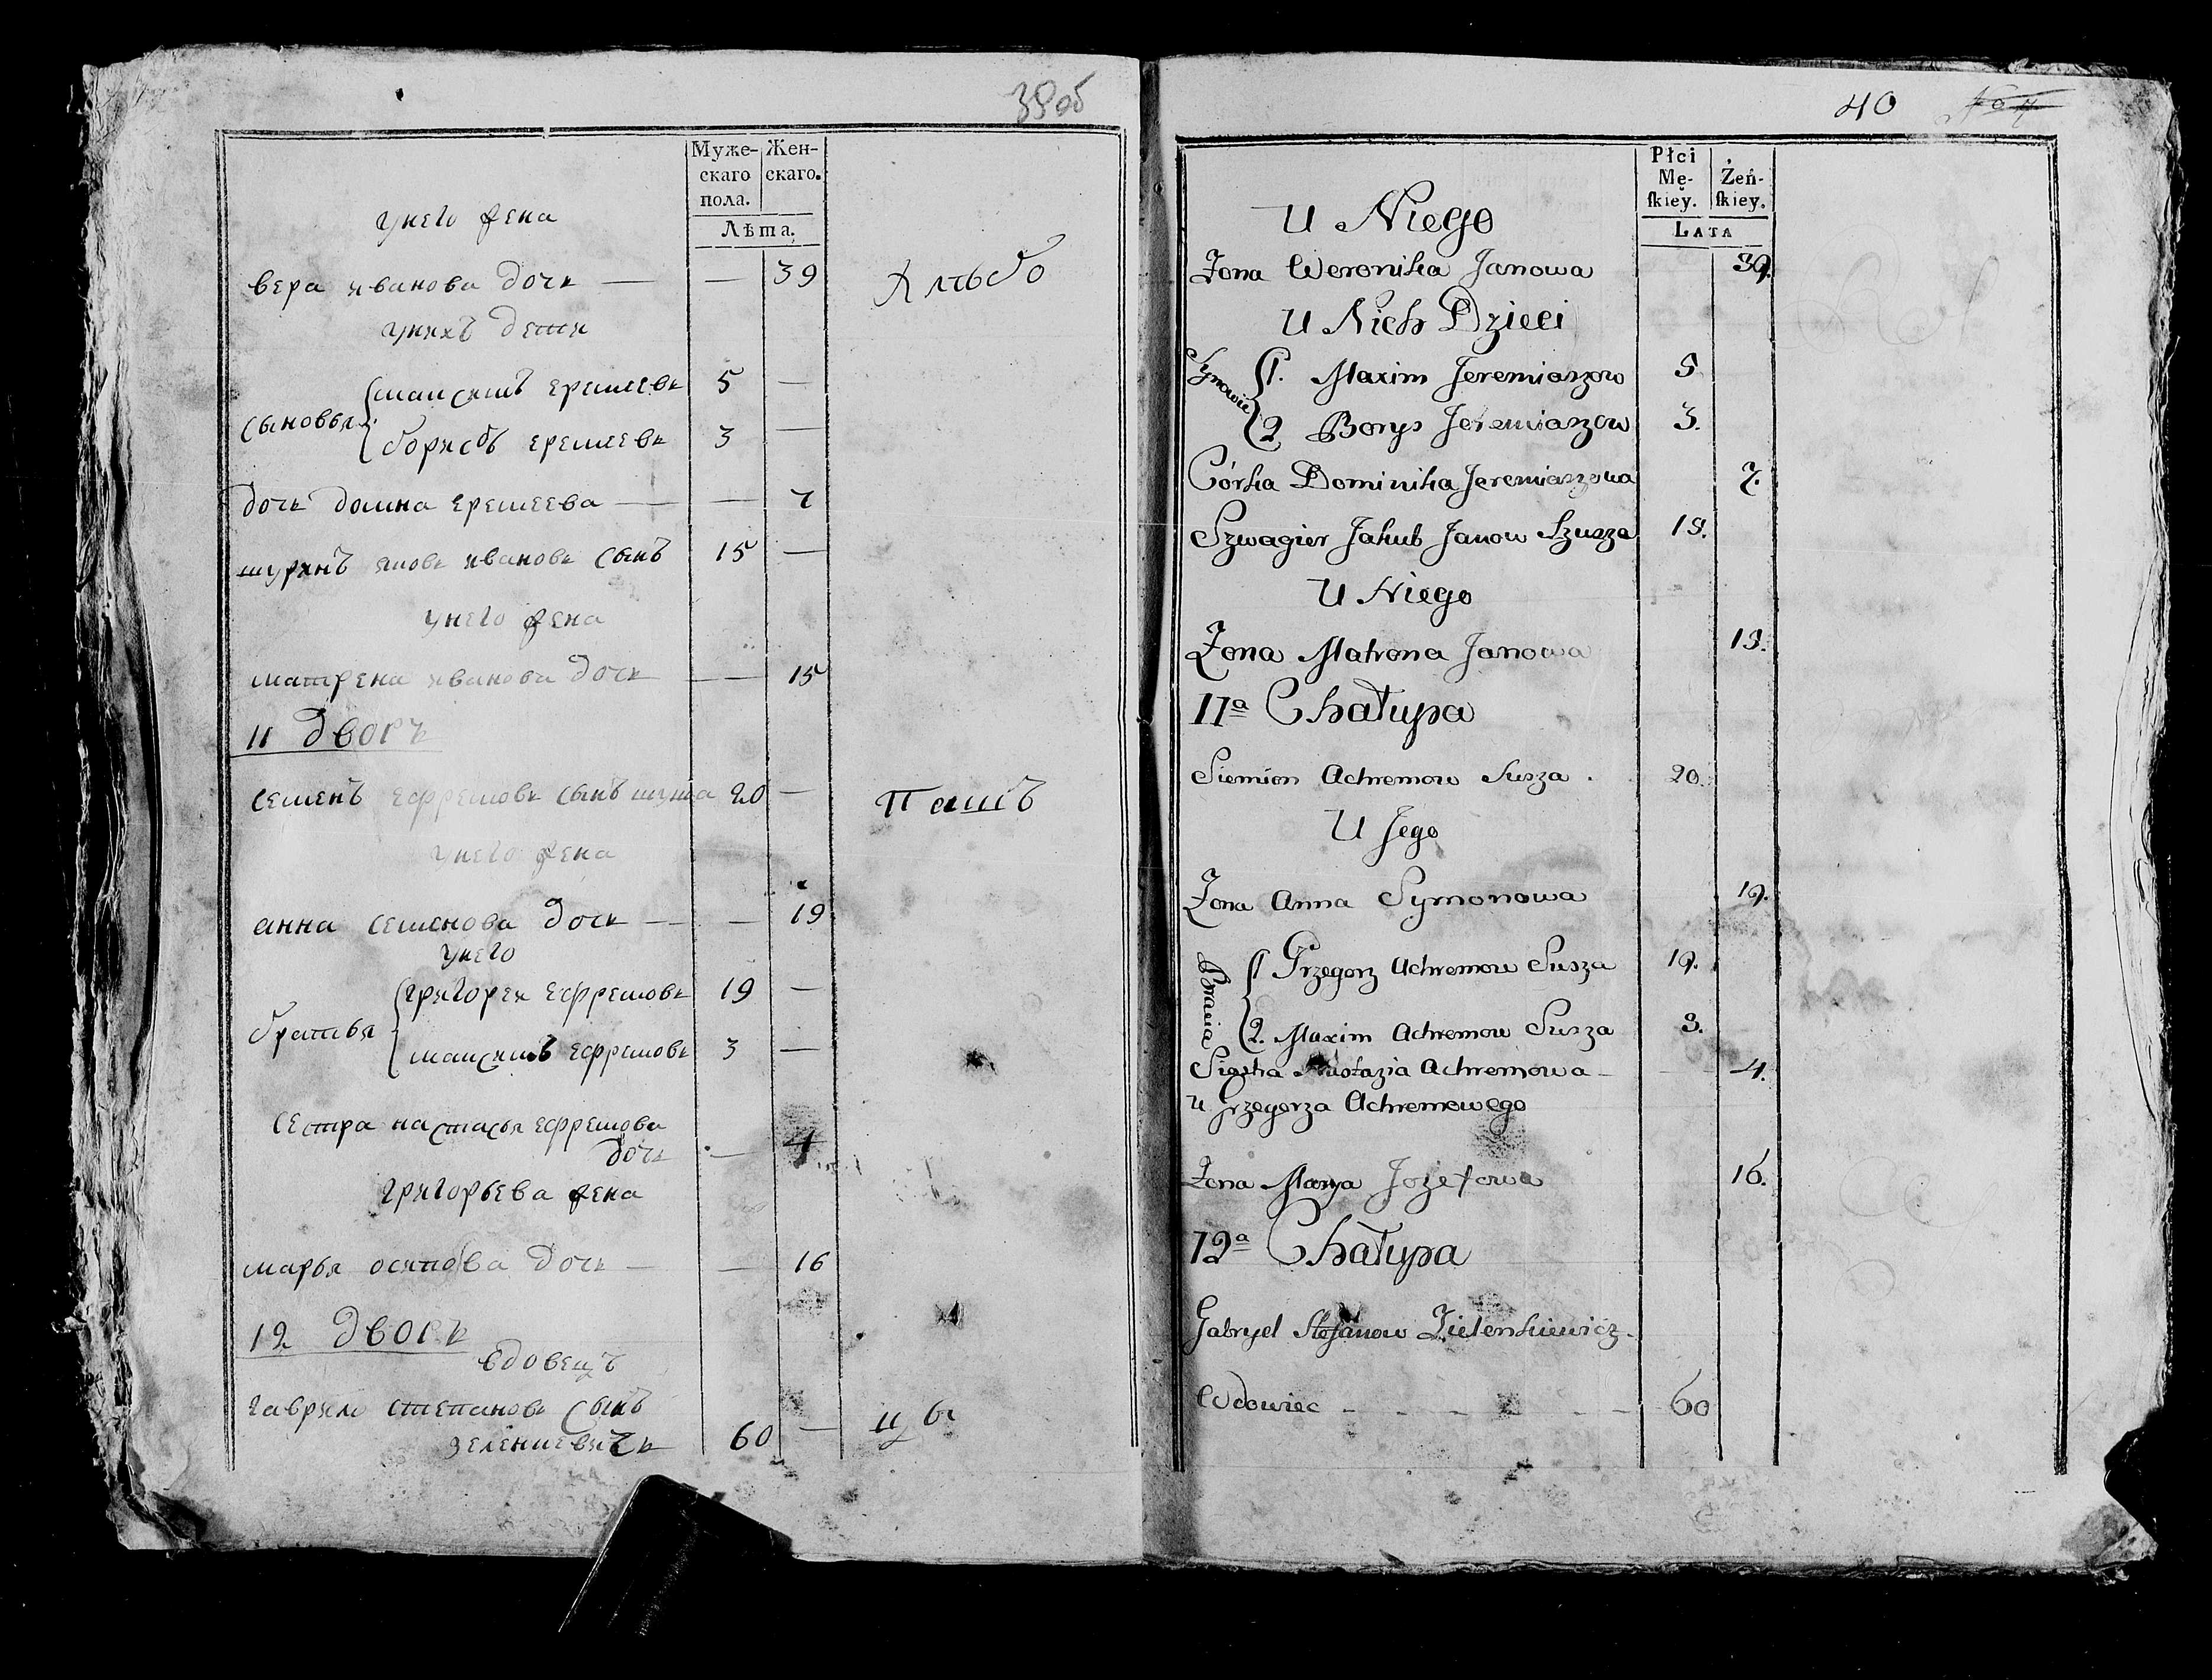 39об
Муже-
скаго
пола.
Жен-
скаго.
Лѣта.
унего жена
вера иванова дочь — — 39
унихъ дети
сыновья
максимъ еремеевъ 5 —
борисъ еремеевъ 3 —
дочь домна еремеева — — 7
шуринъ яковъ ивановъ сынъ 15 —
унего жена
матрена иванова дочь — — 15
11 дворъ
семенъ ефремовъ сынъ шуша 20 —
унего жена
анна семенова дочь — — 19
унего
братья
григореи ефремовъ 19 —
максимъ ефремовъ 3 —
сестра настасья ефремова
дочь — 4
григорьева жена
марья осипова дочь — — 16
12 дворъ
вдовецъ
гаврило степановъ сынъ
зеленкевичъ 60 —
40
Płci
Mę-
ſkiey.
Żeń-
ſkiey.
LATA
U Niego
Żona Weronika Janowa 39.
U Nich Dzieci
Synowie
1. Maxim Jeremiaszow 5
2 Borys Jeremiaszow 3.
Córka Dominika Jeremiaszowa 7.
Szwagier Jakub Janow Szusza 15.
U Niego
Żona Matrona Janowa 15.
11a Chałupa
Siemion Achremow Susza . 20.
U Jego
Żona Anna Symonowa 19.
Bracia
1 Grzegorz Achremow Susza 19.
2. Maxim Achremow Susza 3.
Siostra Nastazia Achremowa - 4.
u Grzegorza Achremowego
Żona Marya Jozefowa 16.
12a Chałupa
Gabryel Stefanow Zielenkiewicz.
Wdowiec - - - - - - 60